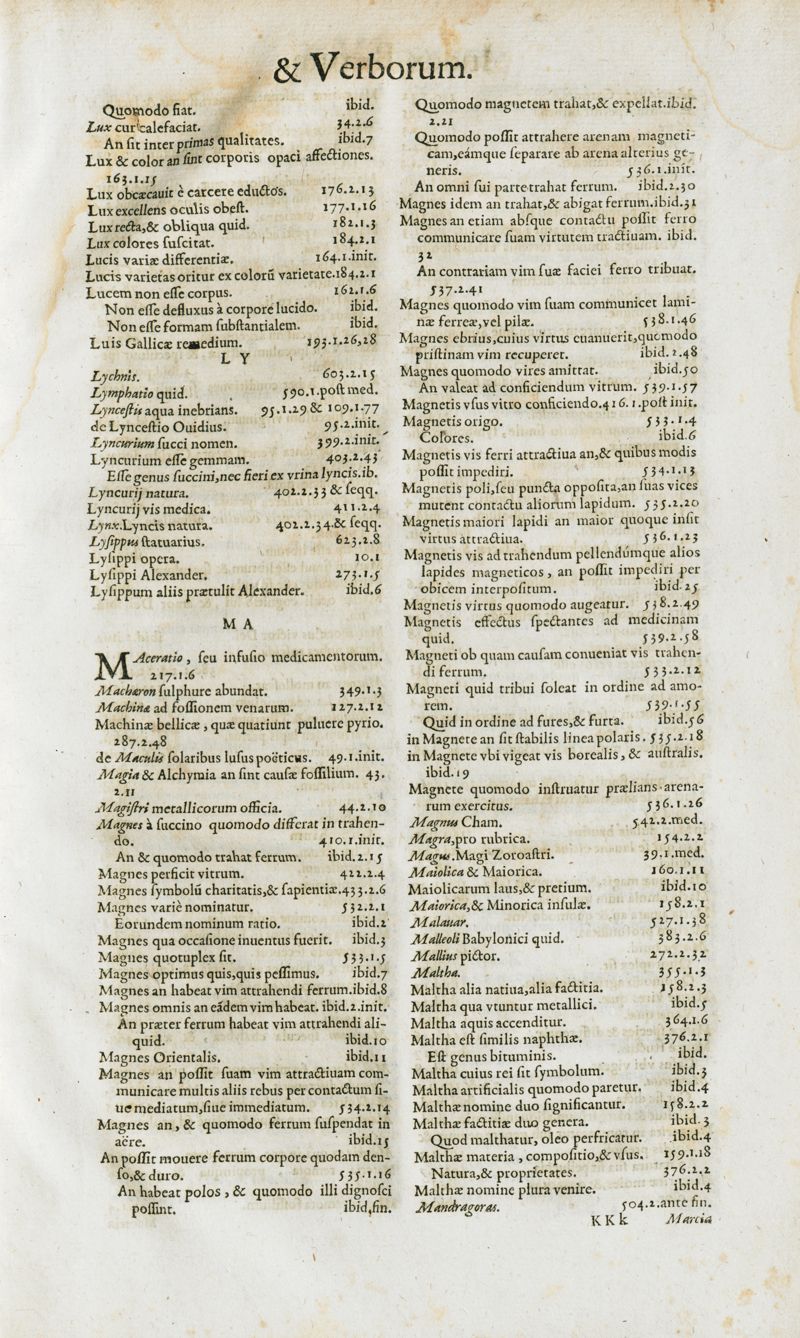 & Verborum.
Quomodo fiat. ibid.
Lux cur calefaciat. 34.2.6
An ſit inter primas qualitates. ibid.7
Lux & color an ſint corporis opaci affectiones.
163.1.15
Lux obcæcauit è carcere eductos. 176.2.13
Lux excellens oculis obeſt. 177.1.16
Lux recta,& obliqua quid. 182.1.3
Lux colores ſuſcitat. 184.2.1
Lucis variæ differentiæ. 164.1.init.
Lucis varietas oritur ex colorū varietate.184.2.1
Lucem non eſſe corpus. 162.1.6
Non eſſe defluxus à corpore lucido. ibid.
Non eſſe formam ſubſtantialem. ibid.
Luis Gallicæ remedium. 193.1.26,28
L Y
Lychnis. 603.2.15
Lymphatio quid. 590.1.poſt med.
Lynceſtis aqua inebrians. 95.1.29 & 109.1.77
de Lynceſtio Ouidius. 95.2.init.
Lyncurium ſucci nomen. 399.2.init.
Lyncurium eſſe gemmam. 403.2.43
Eſſe genus ſuccini,nec fieri ex vrina lyncis.ib.
Lyncurij natura. 402.2.33 & ſeqq.
Lyncurij vis medica. 411.2.4
Lynx.Lyncis natura. 402.2.34.& ſeqq.
Lyſippus ſtatuarius. 623.2.8
Lyſippi opera. 10.1
Lyſippi Alexander. 273.1.5
Lyſippum aliis prætulit Alexander. ibid.6
M A
MAceratio, ſeu infuſio medicamentorum.
217.1.6
Macharon ſulphure abundat. 349.1.3
Machina ad foſſionem venarum. 127.2.12
Machinæ bellicæ, quæ quatiunt puluere pyrio.
287.2.48
de Maculis ſolaribus luſus poëticus. 49.1.init.
Magia & Alchymia an ſint cauſæ foſſilium. 43.
2.11
Magiſtri metallicorum officia. 44.2.10
Magnes à ſuccino quomodo differat in trahen-
do. 410.1.init.
An & quomodo trahat ferrum. ibid.2.15
Magnes perficit vitrum. 422.2.4
Magnes ſymbolū charitatis,& ſapientiæ.433.2.6
Magnes variè nominatur. 532.2.1
Eorundem nominum ratio. ibid.2
Magnes qua occaſione inuentus fuerit. ibid.3
Magnes quotuplex ſit. 533.1.5
Magnes optimus quis,quis peſſimus. ibid.7
Magnes an habeat vim attrahendi ferrum.ibid.8
Magnes omnis an eádem vim habeat. ibid.2.init.
An præter ferrum habeat vim attrahendi ali-
quid. ibid.10
Magnes Orientalis. ibid.11
Magnes an poſſit ſuam vim attractiuam com-
municare multis aliis rebus per contactum ſi-
ue mediatum,ſiue immediatum. 534.2.14
Magnes an, & quomodo ferrum ſuſpendat in
aëre. ibid.15
An poſſit mouere ferrum corpore quodam den-
ſo,& duro. 535.1.16
An habeat polos, & quomodo illi dignoſci
poſſint. ibid.fin.
Quomodo magnetem trahat,& expellat.ibid.
2.21
Quomodo poſſit attrahere arenam magneti-
cam,eámque ſeparare ab arena alterius ge-
neris. 536.1.init.
An omni ſui parte trahat ferrum. ibid.2.30
Magnes idem an trahat,& abigat ferrum.ibid.31
Magnes an etiam abſque contactu poſſit ferro
communicare ſuam virtutem tractiuam. ibid.
32
An contrariam vim ſuæ faciei ferro tribuat.
537.2.41
Magnes quomodo vim ſuam communicet lami-
næ ferreæ,vel pilæ. 538.1.46
Magnes ebrius,cuius virtus euanuerit,quomodo
priſtinam vim recuperet. ibid.2.48
Magnes quomodo vires amittat. ibid.50
An valeat ad conficiendum vitrum. 539.1.57
Magnetis vſus vitro conficiendo.416.1.poſt init.
Magnetis origo. 533.1.4
Colores. ibid.6
Magnetis vis ferri attractiua an,& quibus modis
poſſit impediri. 534.1.13
Magnetis poli,ſeu puncta oppoſita,an ſuas vices
mutent contactu aliorum lapidum. 535.2.20
Magnetis maiori lapidi an maior quoque inſit
virtus attractiua. 536.1.23
Magnetis vis ad trahendum pellendúmque alios
lapides magneticos, an poſſit impediri per
obicem interpoſitum. ibid.25
Magnetis virtus quomodo augeatur. 538.2.49
Magnetis effectus ſpectantes ad medicinam
quid. 539.2.58
Magneti ob quam cauſam conueniat vis trahen-
di ferrum. 533.2.12
Magneti quid tribui ſoleat in ordine ad amo-
rem. 539.1.55
Quid in ordine ad fures,& furta. ibid.56
in Magnete an ſit ſtabilis linea polaris. 535.2.18
in Magnete vbi vigeat vis borealis, & auſtralis.
ibid.19
Magnete quomodo inſtruatur prælians arena-
rum exercitus. 536.1.26
Magnus Cham. 542.2.med.
Magra,pro rubrica. 154.2.2
Magus.Magi Zoroaſtri. 39.1.med.
Maiolica & Maiorica. 160.1.11
Maiolicarum laus,& pretium. ibid.10
Maiorica,& Minorica inſulæ. 158.2.1
Malauar. 527.1.38
Malleoli Babylonici quid. 383.2.6
Mallius pictor. 272.2.32
Maltha. 355.1.3
Maltha alia natiua,alia factitia. 158.2.3
Maltha qua vtuntur metallici. ibid.5
Maltha aquis accenditur. 364.1.6
Maltha eſt ſimilis naphthæ. 376.2.1
Eſt genus bituminis. ibid.
Maltha cuius rei ſit ſymbolum. ibid.3
Maltha artificialis quomodo paretur. ibid.4
Malthæ nomine duo ſignificantur. 158.2.2
Malthæ factitiæ duo genera. ibid.3
Quod malthatur, oleo perfricatur. ibid.4
Malthæ materia, compoſitio,& vſus. 159.1.18
Natura,& proprietates. 376.2.2
Malthæ nomine plura venire. ibid.4
Mandragoras. 504.2.ante fin.
K K k Marcia